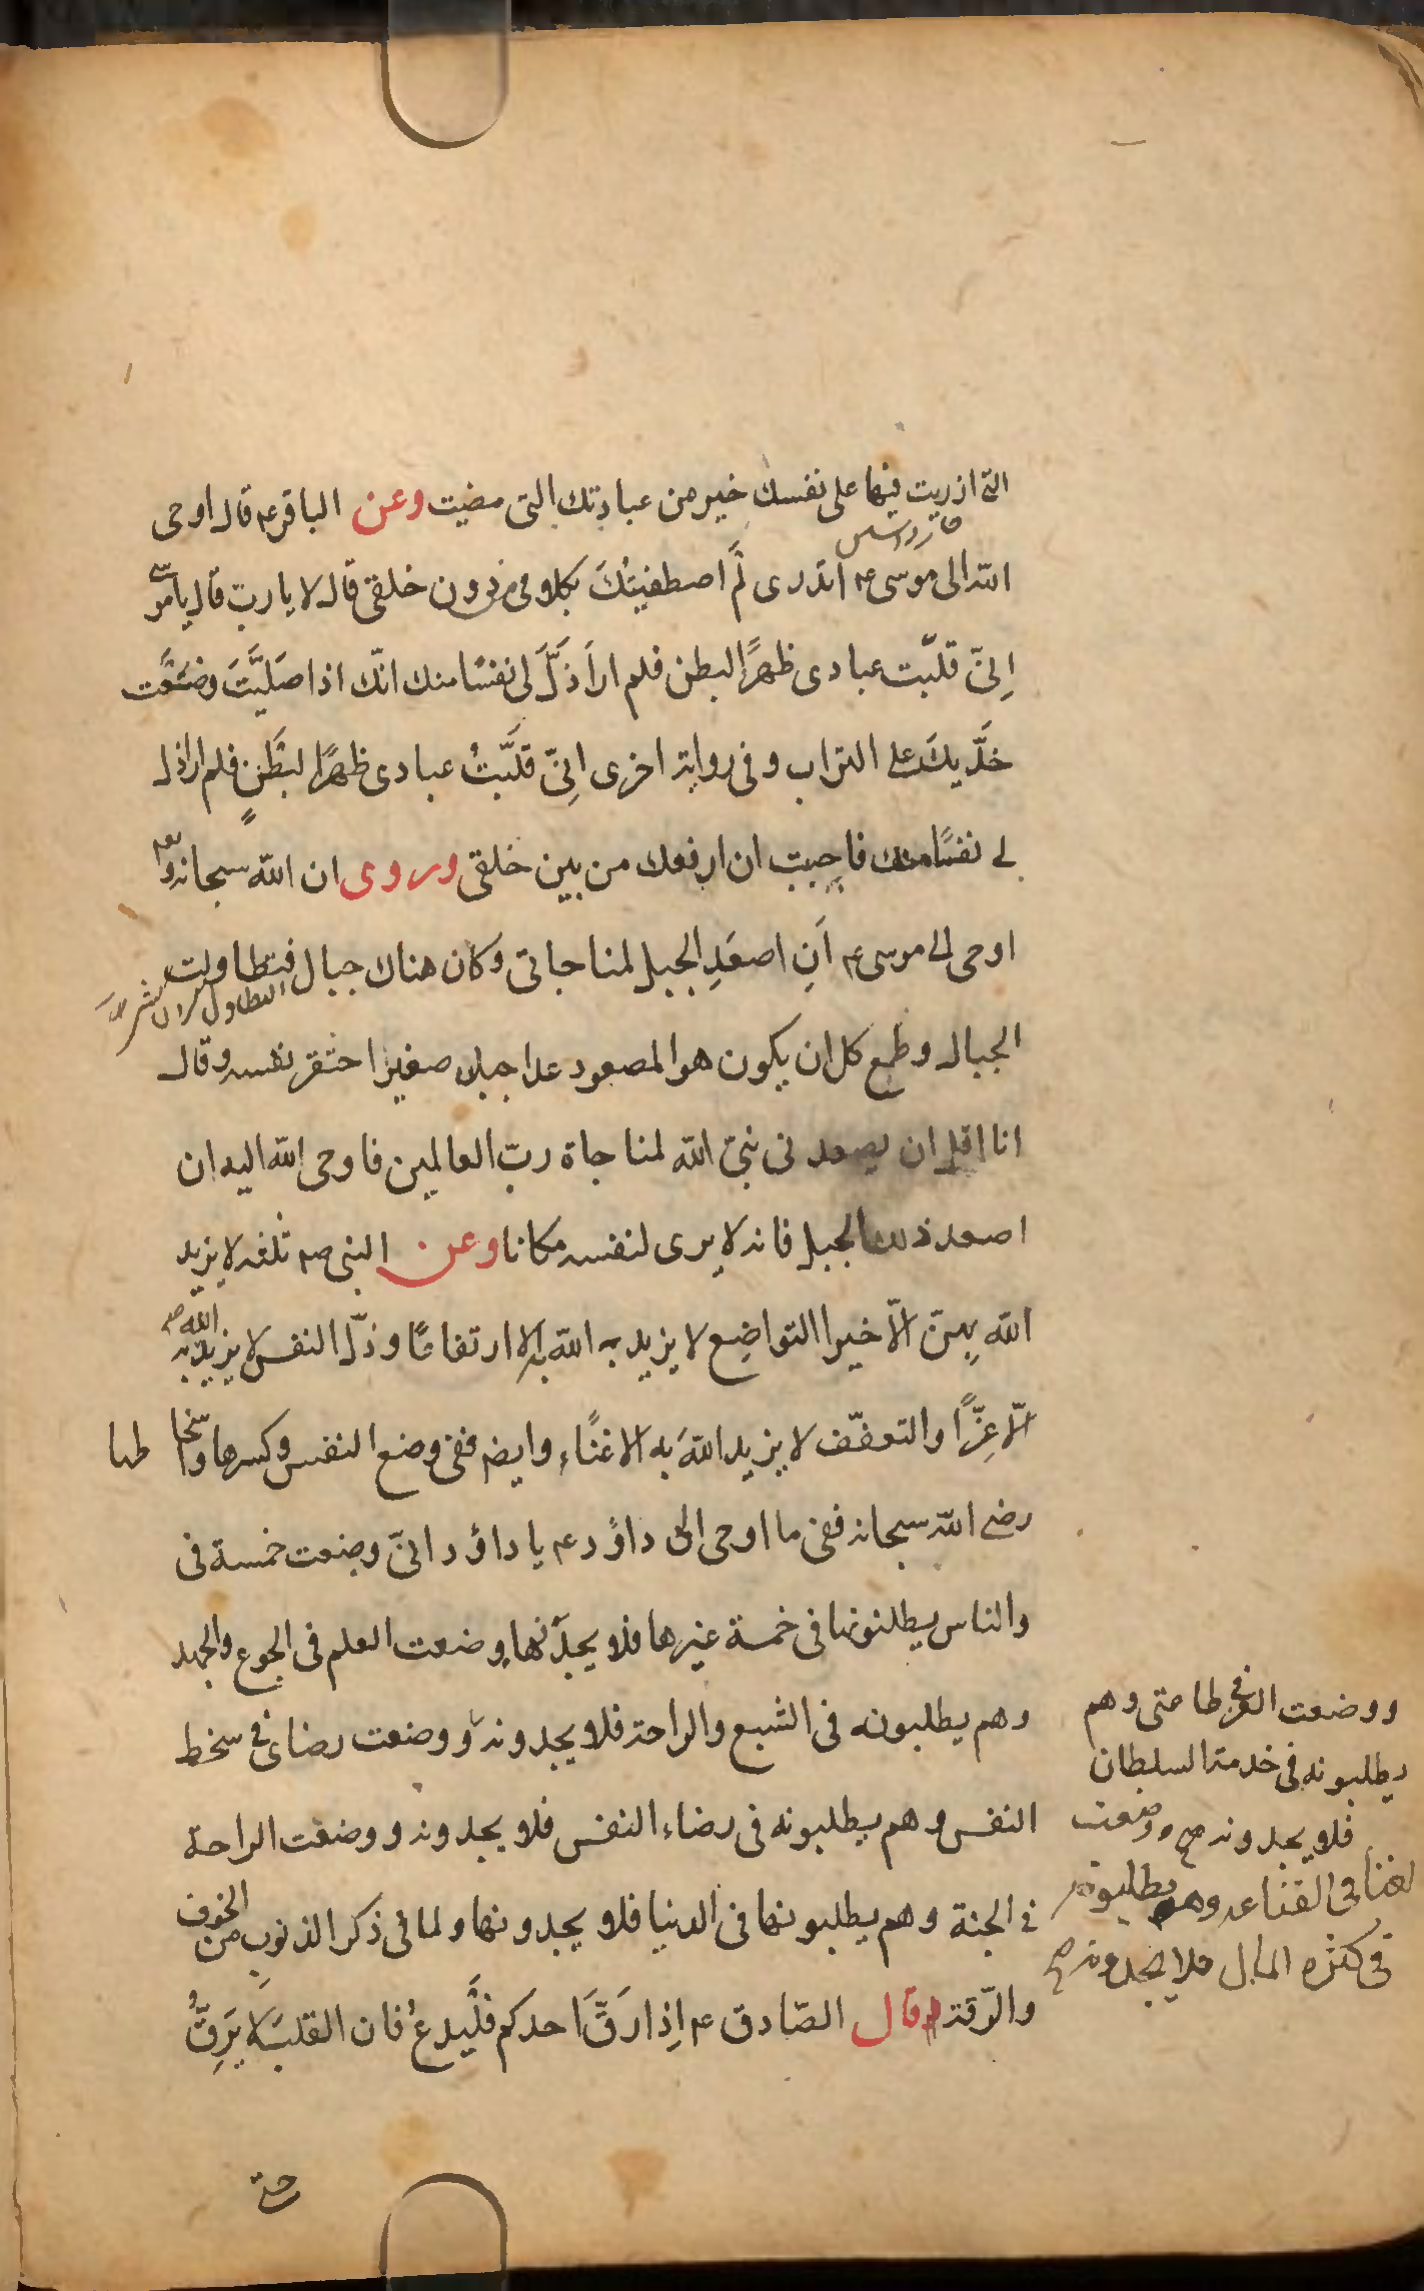 التى ازريت فيها على نفسك خير من عبادتك التى مضيت وعن الباقر ع قال اوحى
الله الى موسى ع اتدرى لم اصطفيتك بكلامى من دون خلقى قال لا يا رب قال يا موسى
اِنّى قلّبت عبادى ظهرًا لبطن فلم ار اَذَلَّ لى نفسًا منك انّك اذا صَلَيَّتَ وضَعَت
خَدّيك على التراب وفى رواية اخرى اِنىّ قَلَّبتُ عبادى ظهرًا لبَطَنٍ فلم ار اذل
لى نفسًا منك فاحببت ان ارفعك من بين خلقى وروى ان الله سبحانه وتعا
اوحى الى موسى ع اَنِ اصعَدِ الجبل لمناجاتى وكان هناك جبال فتطاولت
الجبال وطمع كل ان يكون هو المصعود عدا جبلا صغيرا احتقر نفسه وقال
انا اقل ان يصعدنى نبىّ الله لمناجاة ربّ العالمين فاوحى الله اليه ان
اصعد ذلك الجبل فانه لا يرى لنفسه مكانا وعن النبى صم ثلثه لا يزيد
الله بهنّ الاّ خيرا التواضع لا يزيد به الله به الا ارتفاعًا وذلّ النفس لا يزيد به الله
الاّ عِزًّا والتعفّف لا يزيد اللهَ به الا غنًاء وايضم ففى وضع النفس وكسرها واسخاطها
رضى الله سبحانه ففى ما اوحى الى داؤد ع يا داؤد انىّ وضعت خمسة فى
والناس يطلبونها فى خمسة غيرها فلا يجدونها وضعت العلم فى الجوع والجهد
وهم يطلبونه فى الشبع والراحة فلا يجدونه ووضعت رضاى فى سخط
النفس وهم يطلبونه فى رضاء النفس فلا يجدونه ووضعت الراحة
فى الجنة وهم يطلبونها فى الدنيا فلا يجدونها ولما فى ذكر الذنوب من الخوف
والرّقة قال الصّادق ع اِذا رَقَّ احدكم فلَيدعُ فان القلب لا يَرِقُّ
ووضعت العز فى طاعتى وهم
يطلبونه فى خدمة السلطان
فلا يجدونه صح ووضعت
الغنا فى القناعه وهم يطلبونه
فى كثره المال فلا يجدونه صح
حتى